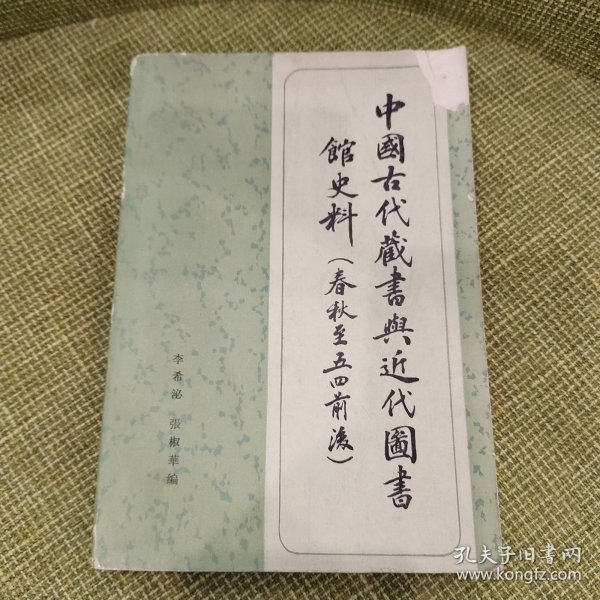 中國古代藏書與近代圖書
館史料（春秋至五四前後）
李希泌 張椒華 編
孔夫子旧书网
www.kongfz.com